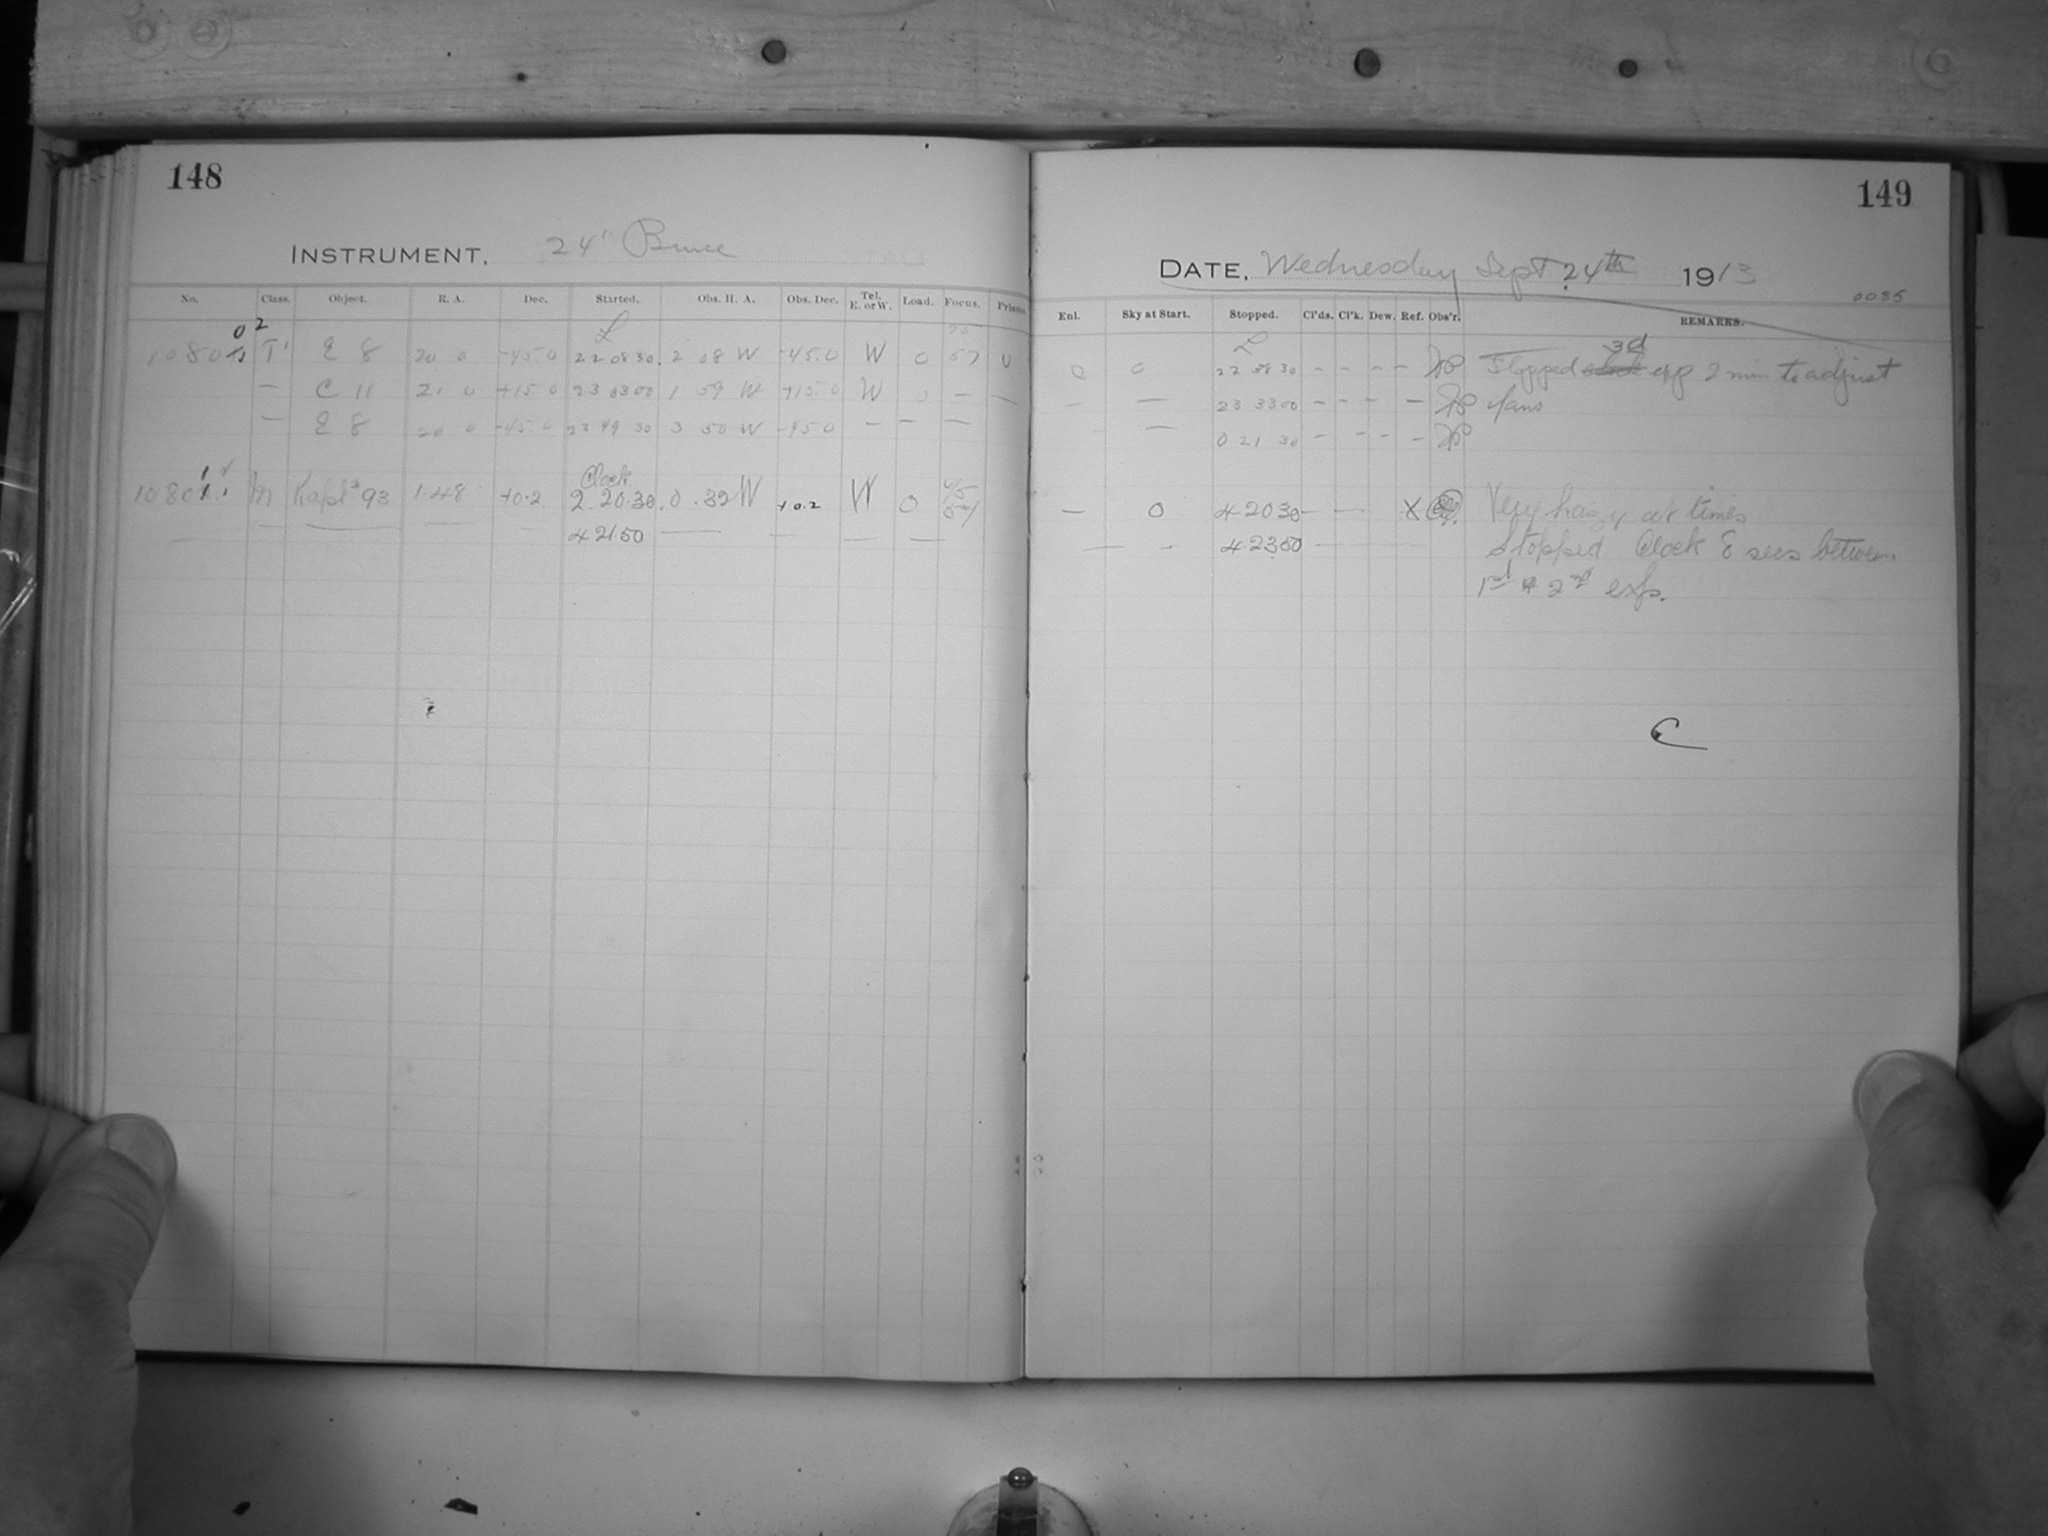 148
INSTRUMENT. 24" Bruce
No. Class. Object. R. A. Dec. Started. Obs. H. A. Obs. Dec. Tel. E. or W. Load. Focus. Prism
L
E 8 20 0 -45.0 22 08 30 2 08 W -45.0 W 0 57 0
— C 11 21 0 +15.0 23 03 00 1 59 W +15.0 W 0 — —
— E 8 20 0 -45.0 23 49 30 3 50 W -45.0 — — —
Clock
M 93 1.48 +0.2 2.20.30 0.32 W +0.2 W 0
— — — 4 21 50 — — — —
149
DATE, Wednesday Sept. 24th 1913
0035
Enl. Sky at Start. Stopped. Cl'ds. Cl'k. Dew. Ref. Obs'r. REMARKS.
L
3d
0 0 22 38 30 – – – – Stopped exp 2 min to adjust
– — 23 33 00 – – – – fans
— 0 21 30 – – – –
— 0 4.20 30 – — X Very hazy at times
— - 4.23.50 Stopped Clock 8 secs between
1st & 2nd exp.
C